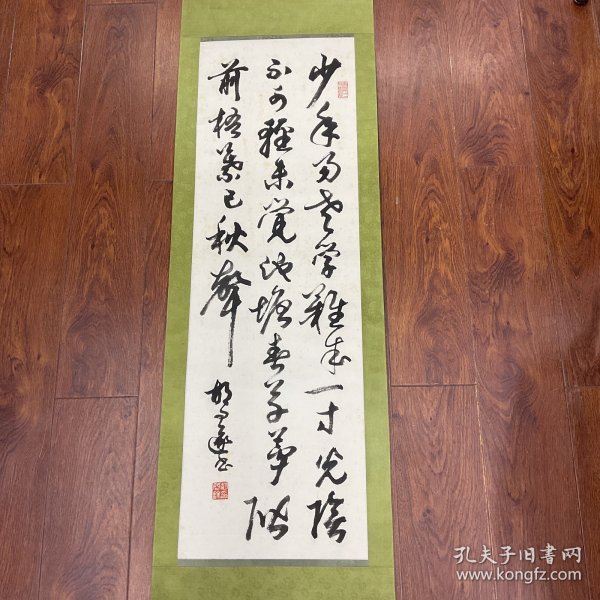 少年易老学難成一寸光陰
不可軽未覚池塘春草夢階
前梧葉已秋聲
孔夫子旧书网
www.kongfz.com